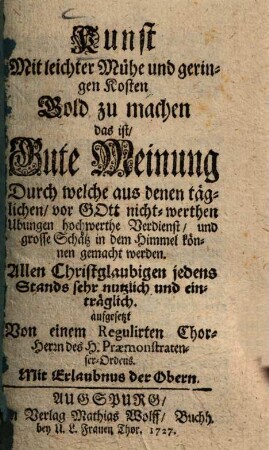 Kunst
Mit leichter Mühe und gerin-
gen Kosten
Gold zu machen
das ist/
Gute Meinung
Durch welche aus denen täg-
lichen/ vor GOtt nicht-werthen
Ubungen hochwerthe Verdienst/ und
grosse Schätz in dem Himmel kön-
nen gemacht werden.
Allen Christglaubigen jedens
Stands sehr nutzlich und ein-
träglich.
aufgesetzt
Von einem Regulirten Chor-
Herrn des H. Præmonstraten-
ser-Ordens.
Mit Erlaubnus der Obern.
AUGSPURG/
n Verlag Mathias Wolff/ Buchh.
bey U. L. Frauen Thor. 1727.